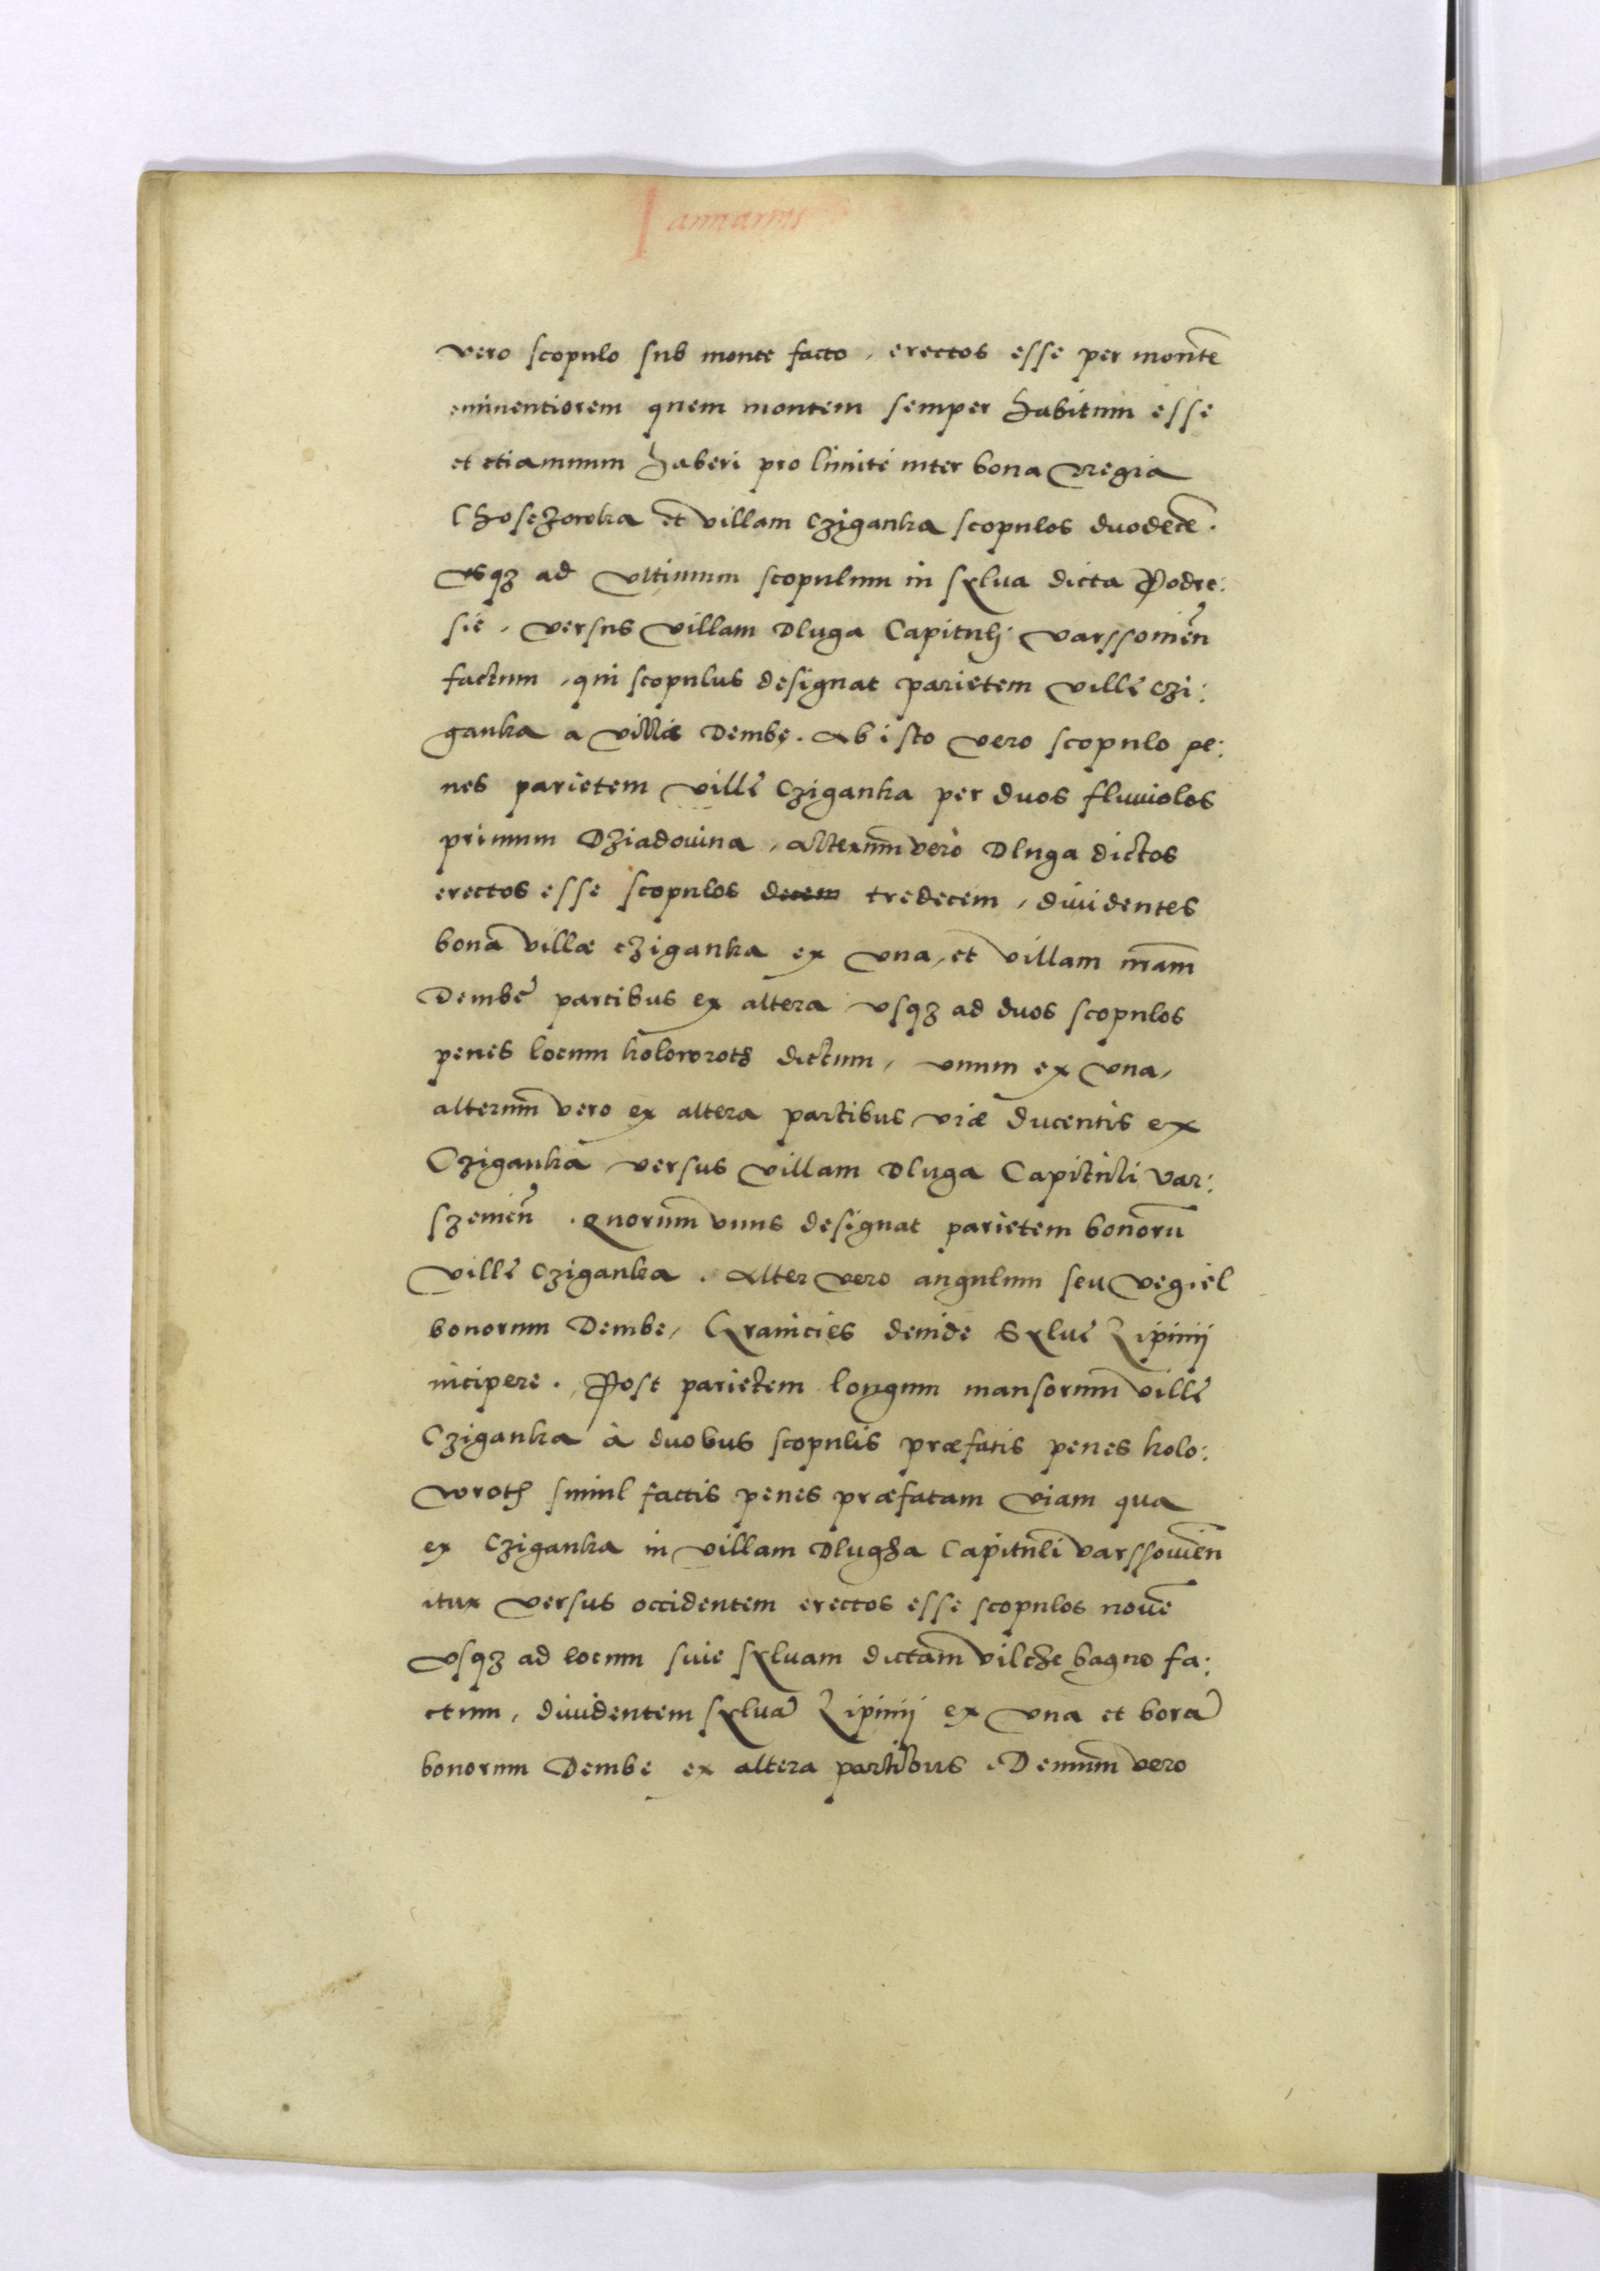 Januarius
vero scopulo sub monte facto, erectos esse per monte͞
eminentiorem quem montem semper habitum esse
et etiamnum haberi pro limite inter bona Regia
Choseʒowka et villam Cziganka scopulos duodece͞.
Usqʒ ad Ultimum scopulum in sylva dicta Podre:
sie, versus villam Dluga Capituli varssovien͞
factum, qui scopulus designat parietem villę Czi:
ganka a villa Dembe. Ab isto vero scopulo pe:
nes parietem villę Cziganka per duos fluviolos
primum Dziadowina, alterum vero Dluga dictos
erectos esse scopulos decem tredecem, dividentes
bona villæ Cziganka ex una, et villam nr͞am
Dembe partibus ex altera usqʒ ad duos scopulos
penes locum kolowroth dictum, unum ex una,
alterum vero ex altera partibus viæ ducentis ex
Cziganka versus villam Dluga Capituli var:
szevien͞. Quorum unus designat parietem bonoru͞
villę Cziganka. Alter vero angulum seu Vegiel
bonorum Dembe, Granicies deinde Sylvę Lipinij
incipere. Post parietem longum mansorum villę
Cziganka à duobus scopulis præfatis penes kolo:
wroth simul factis penes præfatam viam qua
ex Cziganka in villam Dlugha Capituli varssovien͞
itur versus occidentem erectos esse scopulos nove͞
Usqʒ ad locum sive sylvam dictam vilche bagno fa:
ctum, dividentem sylva͞ Lipinij ex una et bora͞
bonorum Dembe ex altera partibus. Demum vero